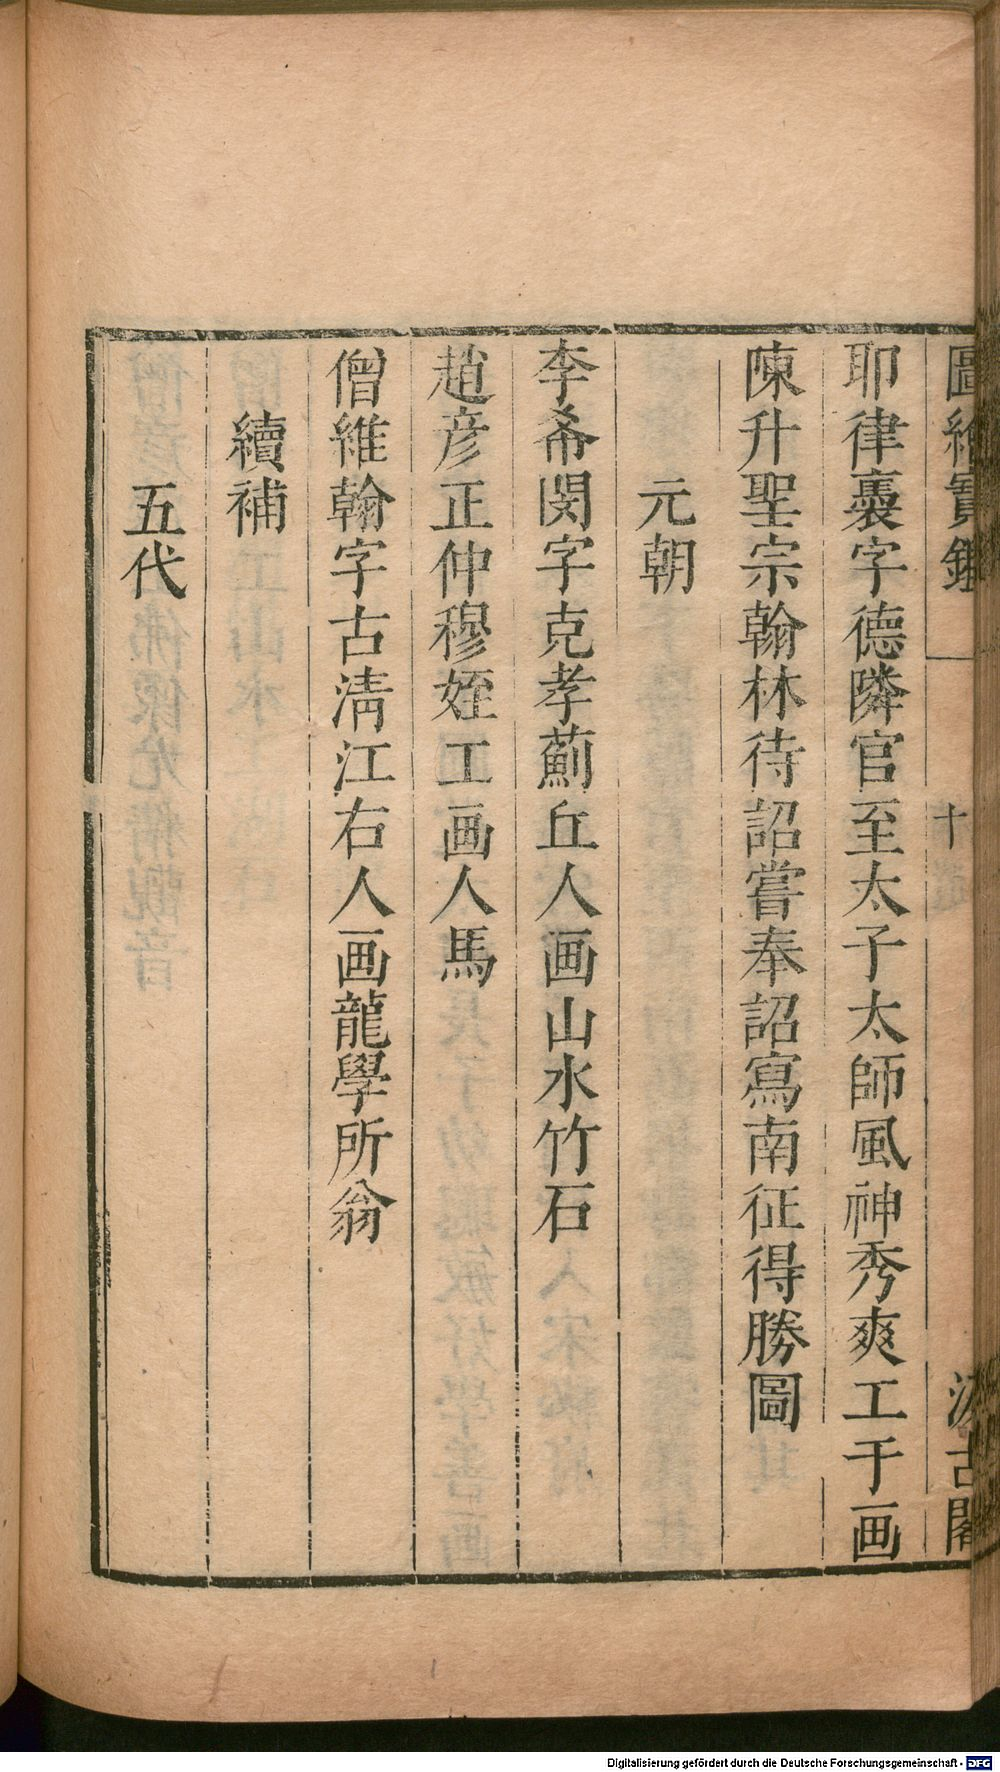 圖繪寳鑑 十 汲古閣
耶律褭字德隣官至太子太師風神秀爽工于画
陳升聖宗翰林待詔嘗奉詔寫南征得勝圖
元朝
李希閔字克孝薊丘人画山水竹石
趙彦正仲穆姪工画人馬
僧維翰字古淸江右人画龍學所翁
續補
五代
Digitalisierung gefördert durch die Deutsche Forschungsgemeinschaft - DFG